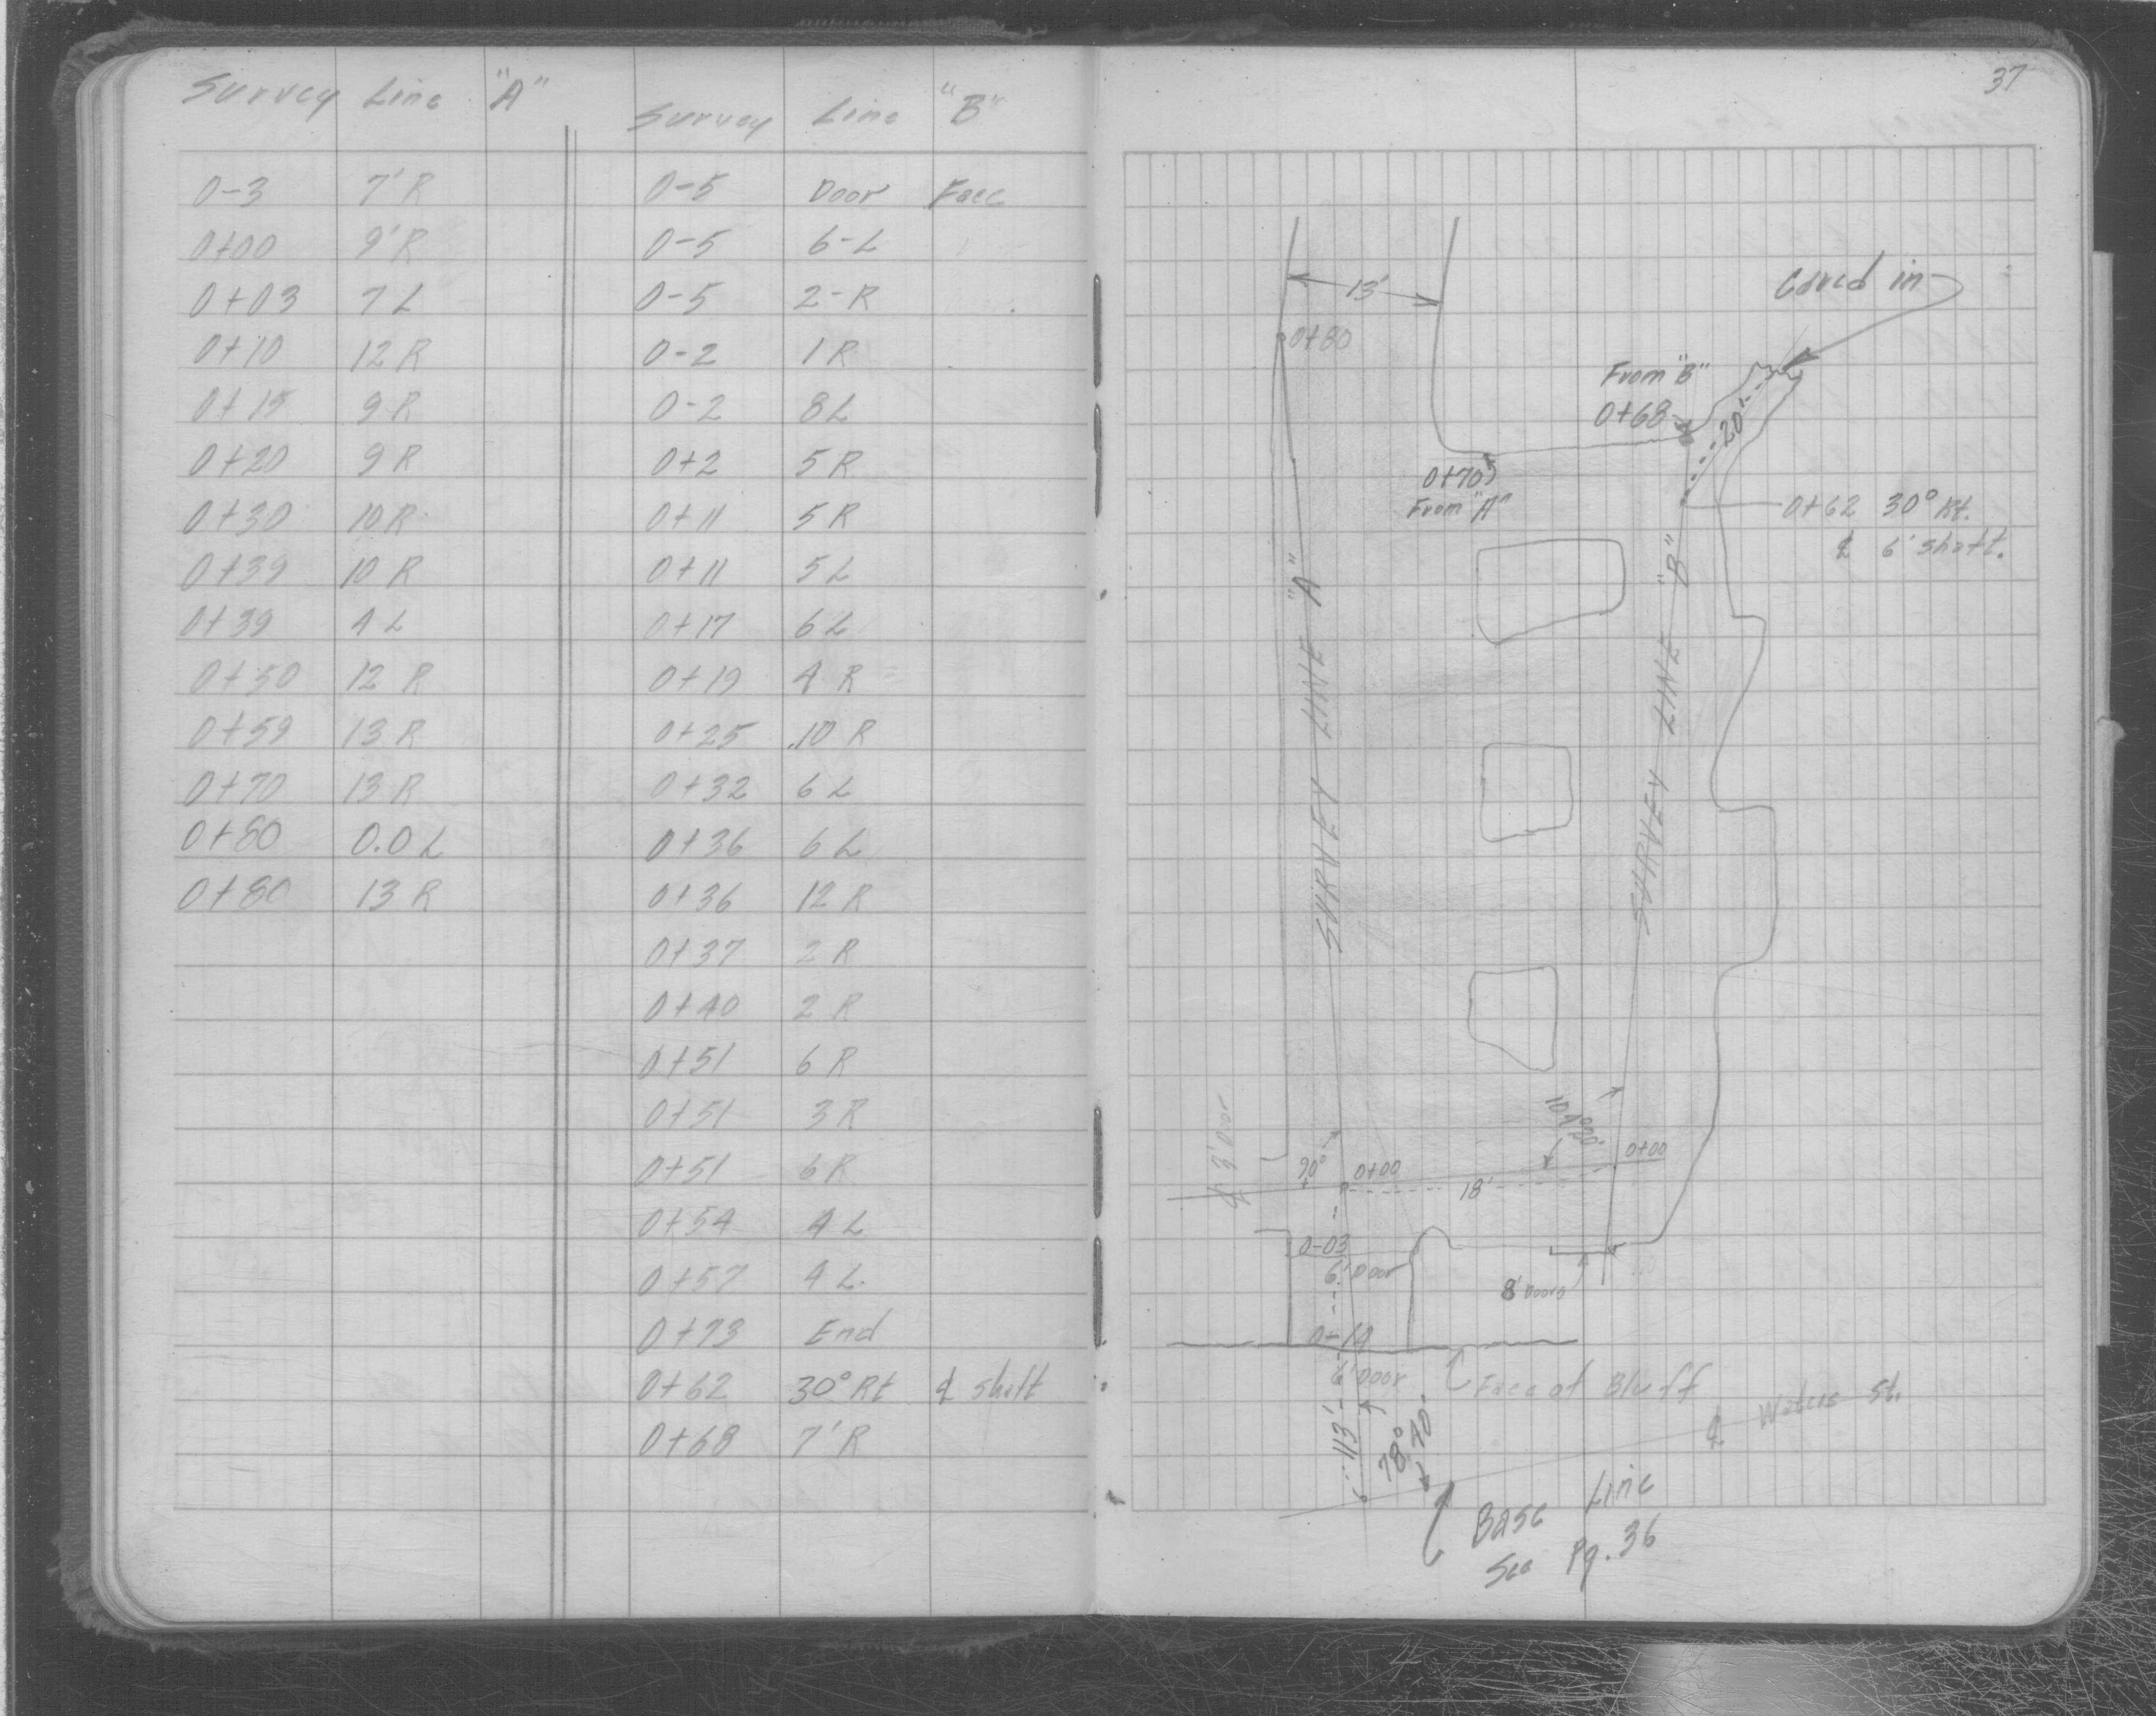 Survey Line "A"
0-3 7'R
0+00 9'R
0+03 7 L
0+10 12 R
0+15 9 R
0+20 9 R
0+30 10 R
0+39 10 R
0+39 4 L
0+50 12 R
0+59 13 R
0+70 13 R
0+80 0.0 L
0+80 13 R
Survey Line "B"
0-5 Door Face
0-5 6-L
0-5 2-R
0-2 1 R
0-2 8 L
0+2 5 R
0+11 5 R
0+11 5 L
0+17 6 L
0+19 4 R
0+25 10 R
0+32 6 L
0+36 6 L
0+36 12 R
0+37 2 R
0+40 2 R
0+51 6 R
0+51 3 R
0+51 6 R
0+54 4 L
0+57 4 L
0+73 End
0+62 30° Rt ℄ shaft
0+68 7'R
37
Caved in
13'
0+80
From "B"
0+68
20'
0+70
From "A"
0+62 30° Rt.
℄ 6' shaft.
SURVEY LINE "A"
SURVEY LINE "B"
℄ 3' Door
90°
0+00
18'
0+00
0-03
6' Door
8' Doors
0-19
6' Door
Face of Bluff
113'
78° 40'
℄ Waters St.
Base Line
See Pg. 36